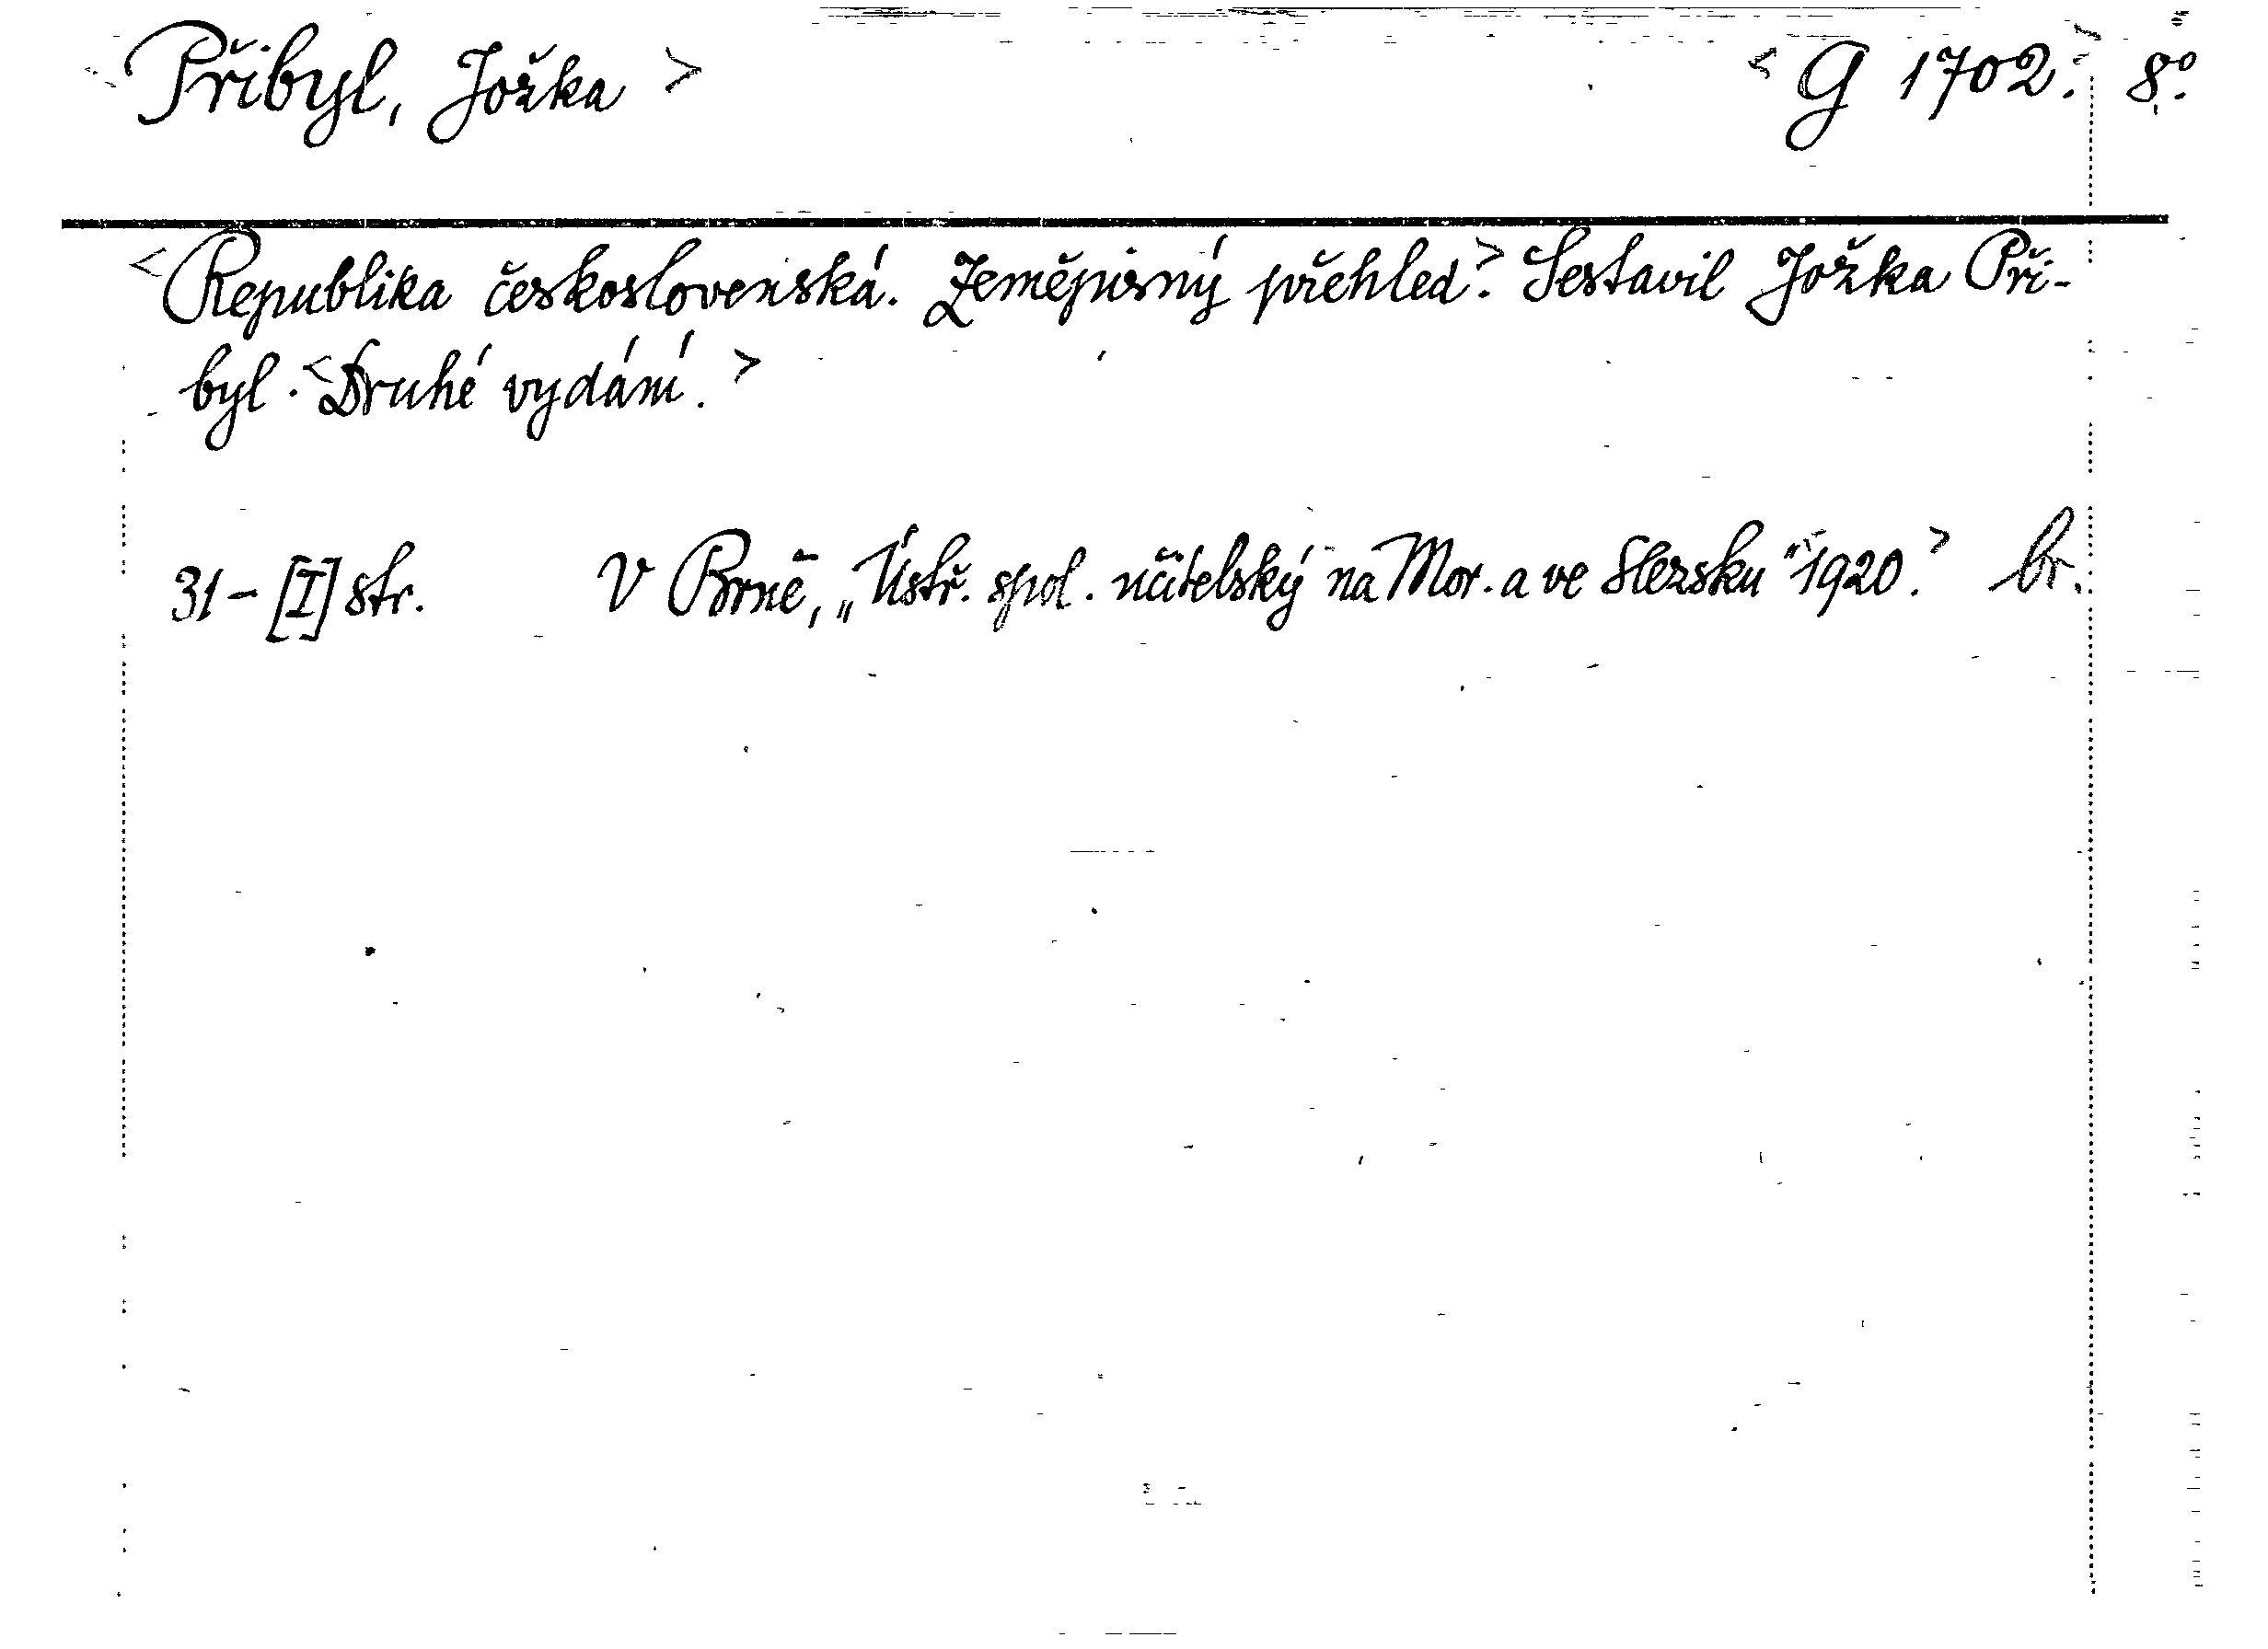 < Přibyl, Jožka > < G 1702. > 8°.
< Republika československá. Zeměpisný přehled. > Sestavil Jožka Při-
byl. < Druhé vydání. >
31 - [I] str. V Brně, „Ústř. spol. učitelský na Mor. a ve Slezsku" < 1920. > br.